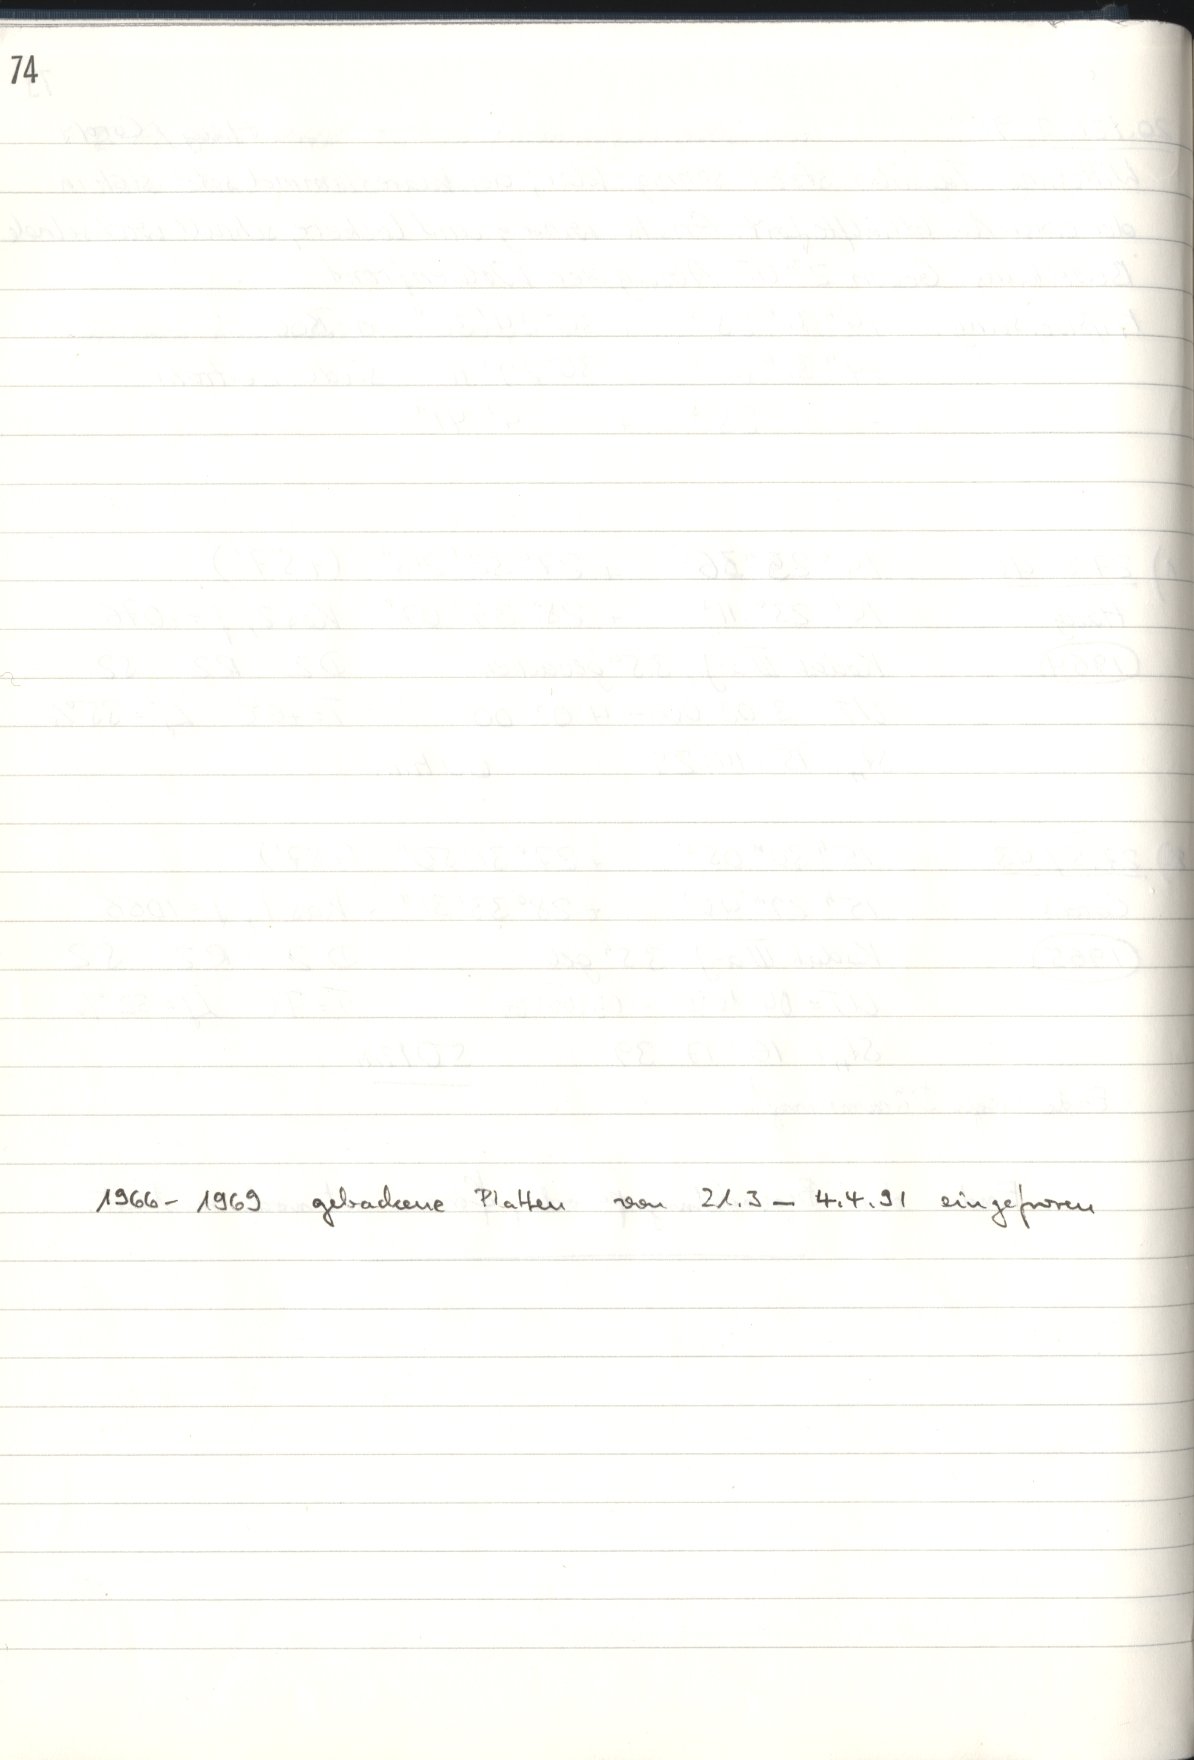 74
1966 - 1969 gebackene Platten von 21.3 - 4.4.91 eingefroren